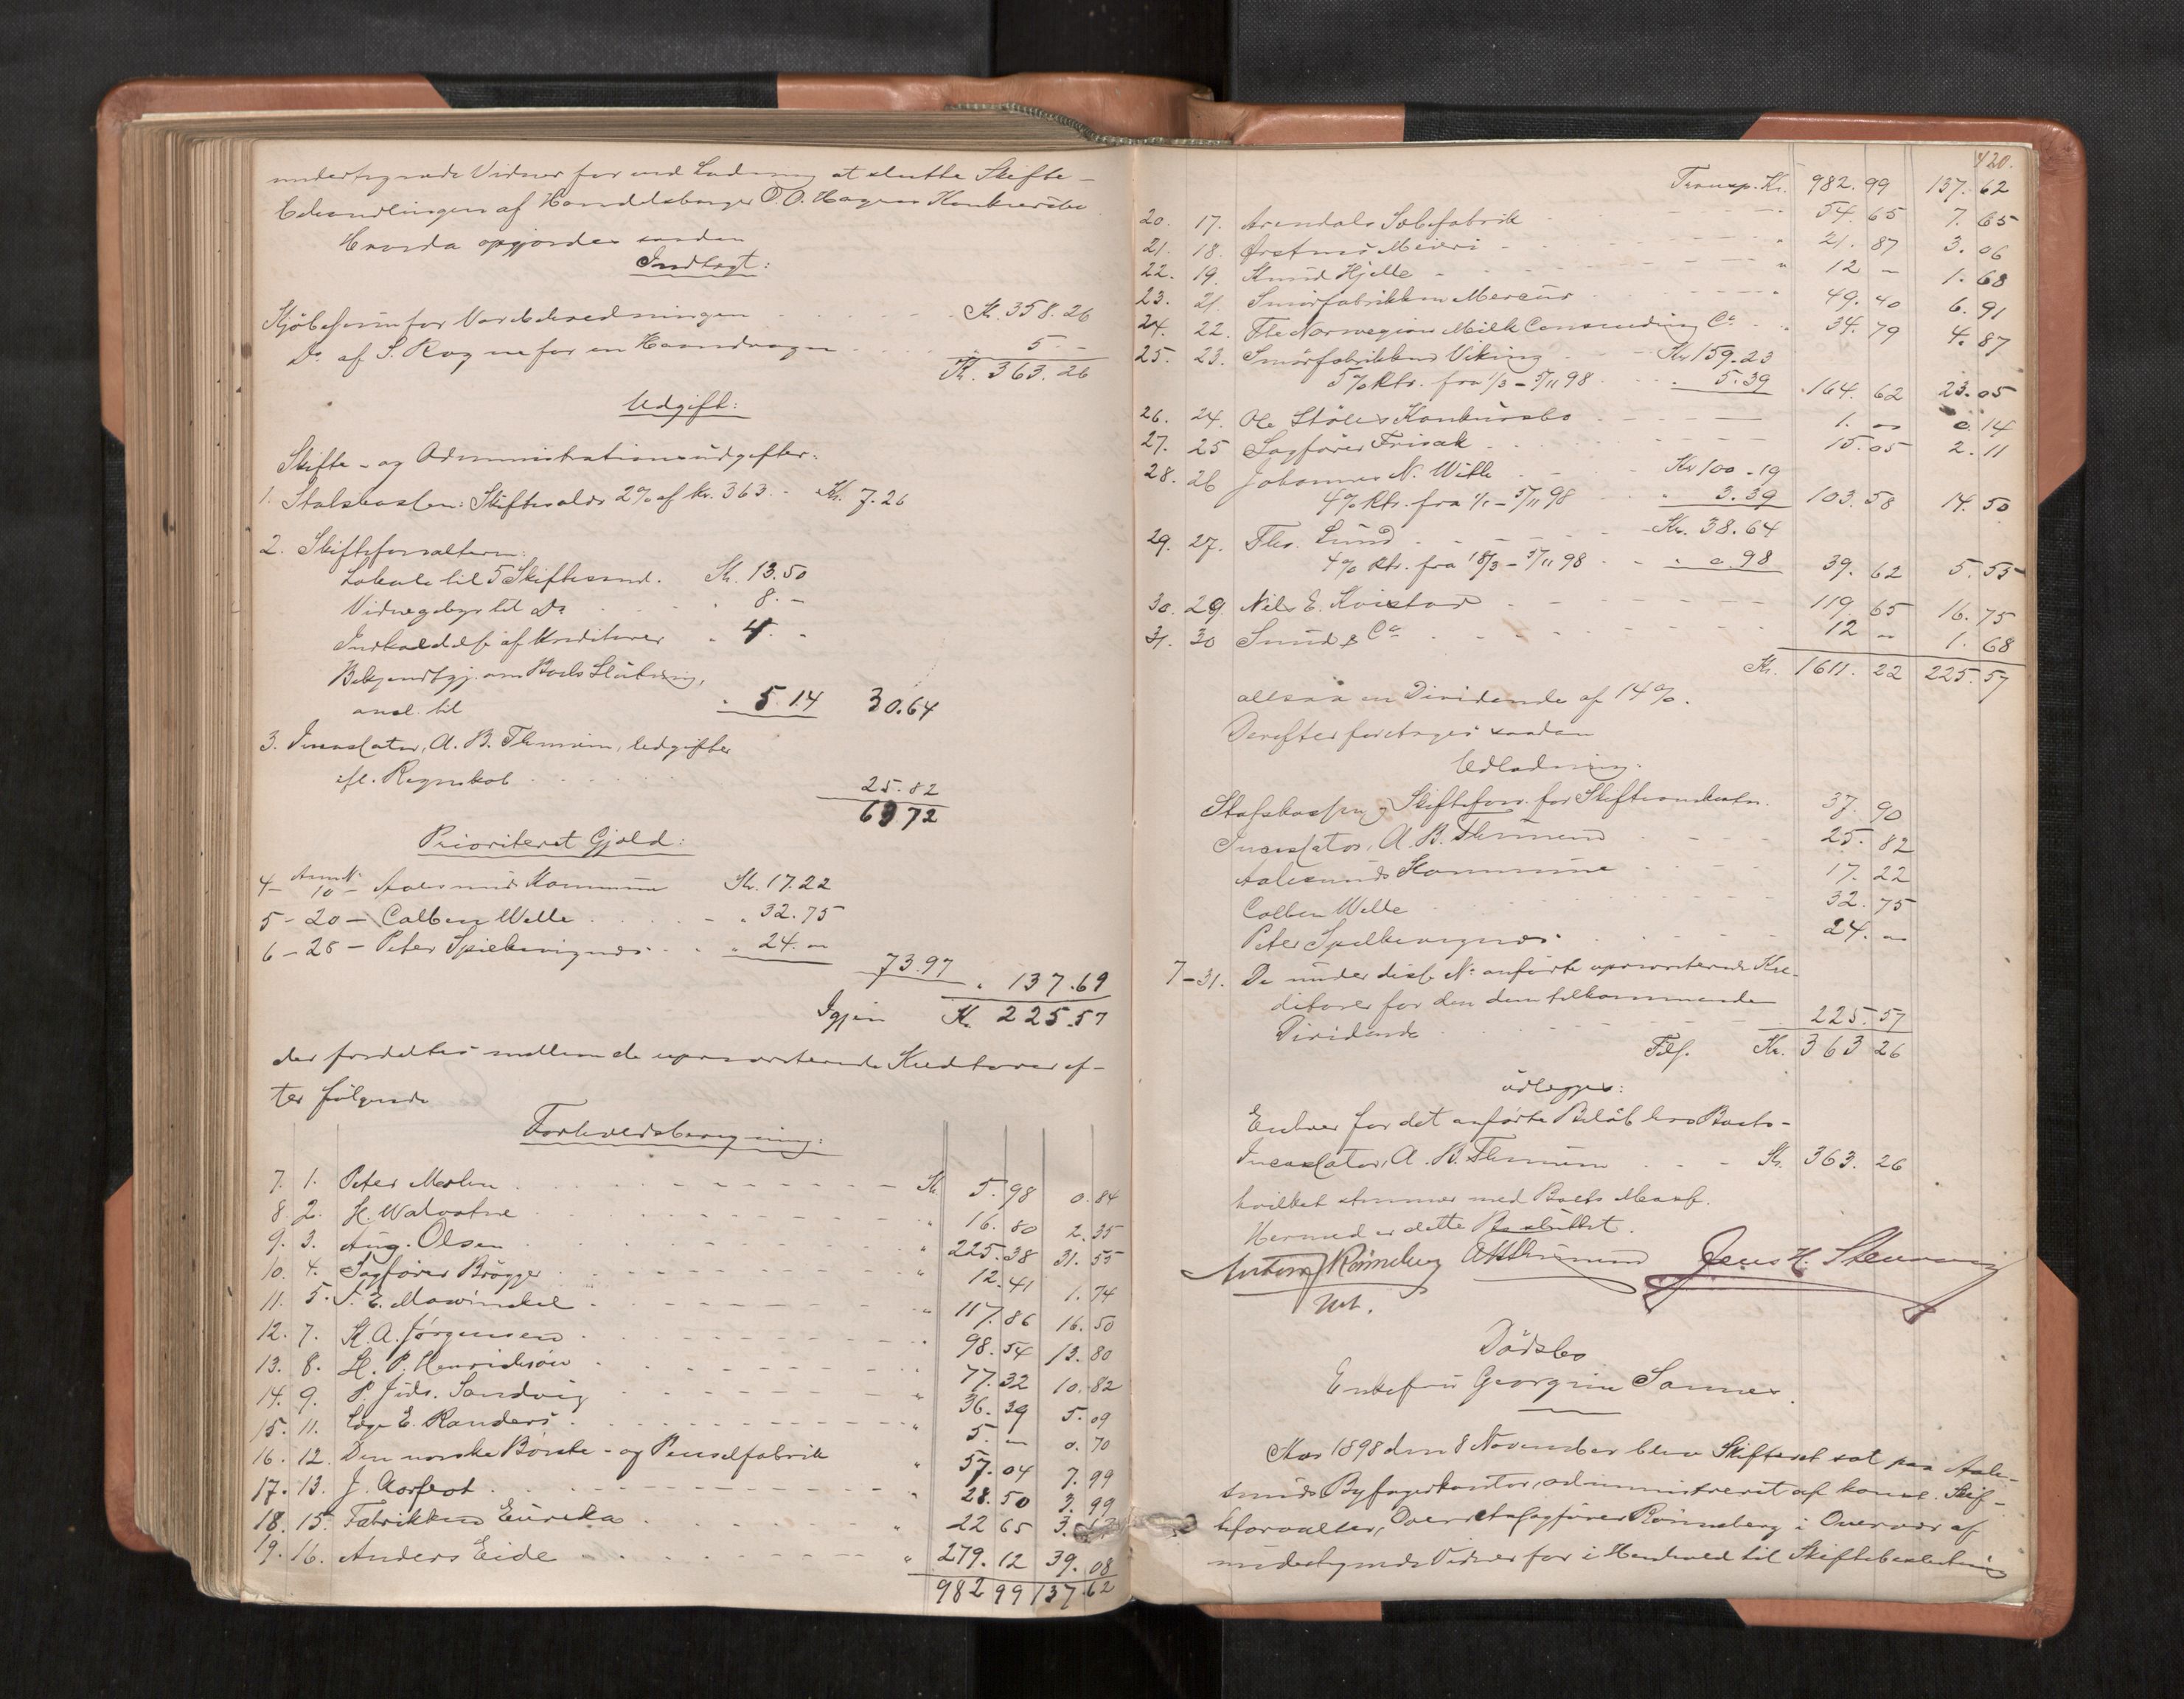 undertegnede Vidner for ved Lodning at slutte Skifte-
behandlingen af Handelsborger O. O. Hagens Konkursbo
Hvorda opgjordes saadan
Indtægt:
Kjöbesum for Varebeholdningen Kr. 358. 26
Do. af S. Rogne for en Haandvogn " 5 -
Kr. 363. 26
Udgift:
Skifte- og Administrationsudgifter:
1. Statskassen: Skiftesalær 2% af kr. 363. - Kr. 7.26
2. Skifteforvalteren:
Lokale til 5 Skiftesaml. Kr. 13.50
Vidnegebyr til Do " 8. -
Indkaldelse af Kreditorer " 4 -
Bekjendtgj. om Boets Slutning,
ansl. til " 5.14 30.64
3. Incassator, A. B. Thunem, Udgifter
efl. Regnskab 25.82
63 72
Prioriteret Gjæld:
4 - Anm. N. 10 - Aalesunds Kommune Kr. 17.22
5 - 20 - Colben Welle " 32.75
6 - 28 - Peter Spjelkevignes " 24. -
73.97 " 137.69
Igjen Kr. 225.57
der fordeltes mellem de uprioriterede Kreditorer ef-
ter følgende
Forholdsberegning:
7. 1. Peter Moslen Kr. 5. 98 0. 84
8. 2. H. Walvatne " 16. 80 2. 35
9. 3. Aug. Olsen " 225. 38 31. 55
10. 4. Sagfører Brögger " 12. 41 1. 74
11. 5. S. E. Mowinckel " 117. 86 16. 50
12. 7. K. A. Jørgensen " 98. 54 13. 80
13. 8. H. P. Henriksen " 77. 32 10. 82
14. 9. P. Juls. Sandvig " 36. 39 5. 09
15. 11. Læge E. Randers " 5. - 0. 70
16. 12. Den norske Börste- og Penselfabrik " 57. 04 7. 99
17. 13. J. Aarflot " 28. 50 3. 99
18. 15. Fabrikken Eureka " 22 65 3.
19. 16. Anders Eide " 279. 12 39. 08
982 99 137. 62
420.
Transp. Kr. 982. 99 137. 62
20. 17. Arendals Sæbefabrik " 54. 65 7. 65
21. 18. Ørstens Meieri " 21. 87 3. 06
22. 19. Knud Hjelle " 12 - 1. 68
23. 21. Smörfabrikken Mercur " 49. 40 6. 91
24. 22. The Norwegian Milk Condensing Co. " 34. 79 4. 87
25. 23. Smörfabrikken Viking Kr 159.23
5% Rts. fra 1/3 - 5/11 98 " 5.39 " 164. 62 23. 05
26. 24. Ole Störes Konkursbo 1. - 0. 14
27. 25 Sagfører Frisak 15. 05 2. 11
28. 26 Johannes N. Witte Kr 100.19
4% Rts. fra 1/1 - 5/11 98 " 3.39 103. 58 14. 50
29. 27. Ths. Lund Kr. 38.64
4% Rts. fra 18/3 - 5/11 98 " 0.98 39. 62 5. 55
30. 29. Nils E. Kvistad 119. 65 16. 75
31. 30 Sund & Co. 12 - 1. 68
Kr. 1611. 22 225. 57
altsaa en Dividende af 14%.
Derefter foretoges saadan
Udlodning:
Statskassen og Skifteforv. for Skifteomkostn. 37. 90
Incassator, A. B. Thunem 25. 82
Aalesunds Kommune 17. 22
Colben Welle 32. 75
Peter Spjelkevignes 24. -
7-31. De under disse No. anførte uprioriterede Kre-
ditorer for den dem tilkommende
Dividende 225. 57
Tils. Kr. 363 26
udlegges:
Enhver for det anførte Beløb hos Boets
Incassator, A. B. Thunem Kr. 363. 26
hvilket stemmer med Boets Masse.
Hermed er dette Bo sluttet.
Anton Rønneberg A B Thunem Jens H. Stenvaag
kst.
Dödsbo
Enkefru Georgine Sanne
Aar 1898 den 8 November blev Skifteret sat paa Aale-
sunds Byfogedkontor, administreret af konst. Skif-
teforvalter, Overretssagfører Rønneberg i Overvær af
undertegnede Vidner for i Henhold til Skiftebeslutning